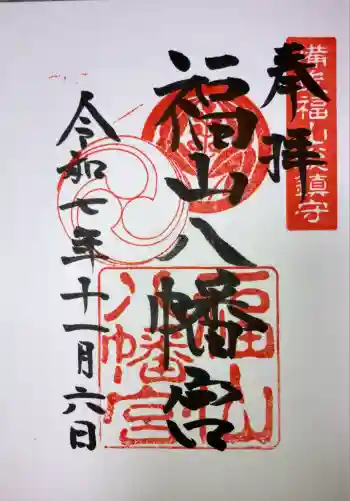 奉拝
備後福山總鎮守
福山八幡宮
福山八幡宮
令和七年十一月六日